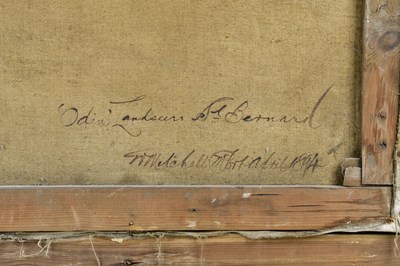 'Odin' Landseers St. Bernard
W Mitchell